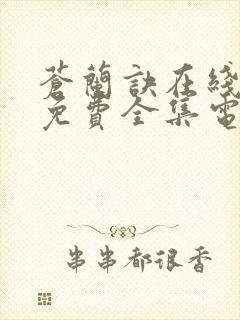 蒼蘭訣在綫
免費全集電
串串都很香